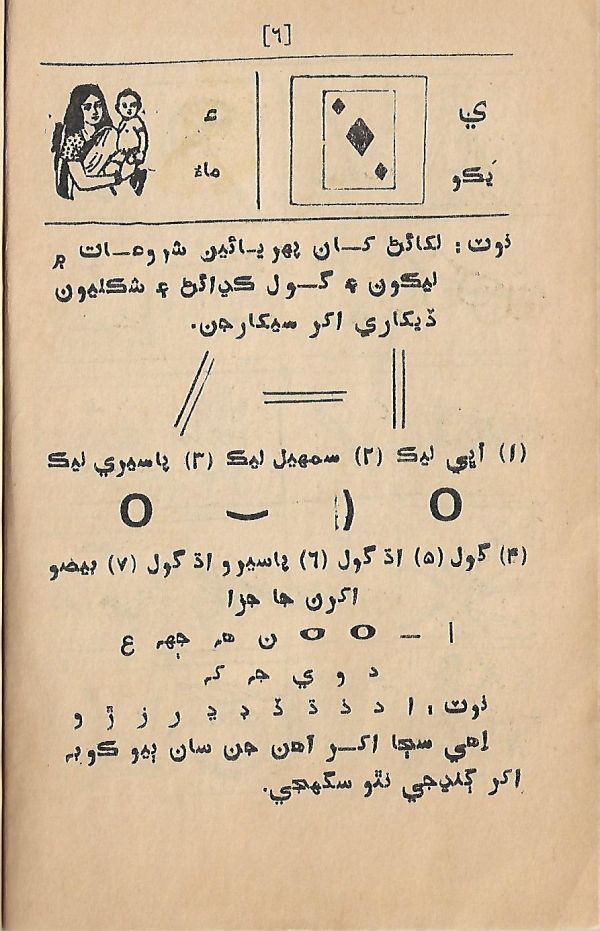 [٦]
ي
يَڪو
ء
ماءُ
نوٽ: لکائڻ کان پهريائين شروعات ۾
ليڪون ۽ گول ڪڍائڻ ۽ شڪليون
ڏيکاري اکر سيکارجن.
(١) اڀي ليڪ (٢) سمهيل ليڪ (٣) پاسيري ليڪ
(۴) گول (۵) اڌ گول (٦) پاسيرو اڌ گول (٧) بيضو
اکرن جا جزا
ا ـ ن ھ جهہ ع
د و ي حہ کہ
نوٽ: ا د ذ ڌ ڏ ڊ ڍ ر ز ڙ و
اهي سڀا اکر آهن جن سان ٻيو ڪوبہ
اکر ڳنڍجي نٿو سگهجي.